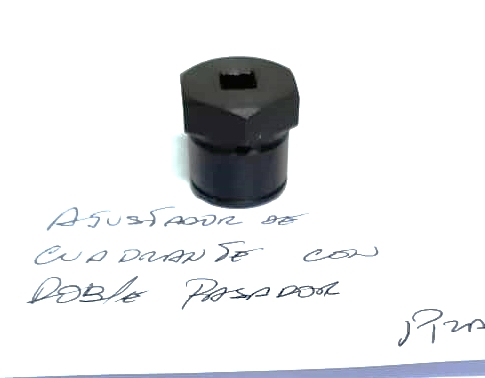 AJUSTADOR DE
CUADRANTE CON
DOBLE PASADOR